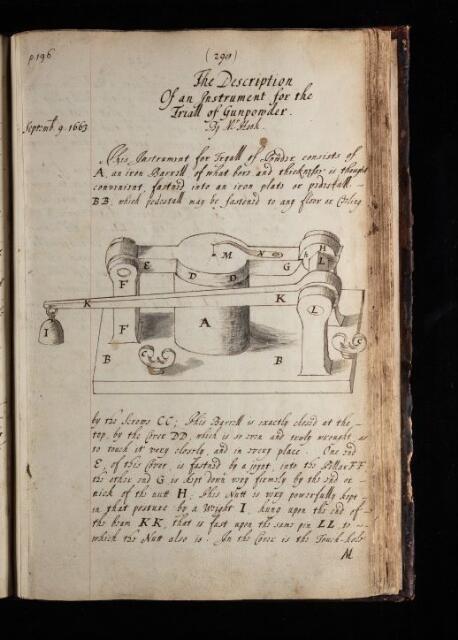 p 196
(290)
The Description
Of an Instrument for the
Triall of Gunpowder.
By Mr Hook.
Septemb. 9. 1663
This Instrument for Tryall of Powder consists of
A, an iron Barrell of what bore and thickness is thought
convenient, fastned into an iron plate or pedestall.
BB, which pedestall may be fastened to any floor or Ceiling
M
N
H
h
L
E
D
D
G
F
K
K
L
A
F
I
B
C
B
C
by the Screws CC; This Barrell is exactly closed at the
top by the Cover DD, which is so even and truly wrought as
to touch it very closely, and in every place. One end
E, of this Cover, is fastned by a joynt, into the Pillar FF,
the other end G is kept down very firmly by the end or
nick of the nutt H; This Nutt is very powerfully kept
in that posture by a Weight I, hung upon the end of
the beam KK, that is fast upon the same pin LL, to
which the Nutt also is: In the Cover is the Touch-hole
M